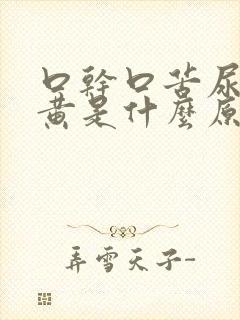 口幹口苦尿
黄是什麼原
弄雪天子-